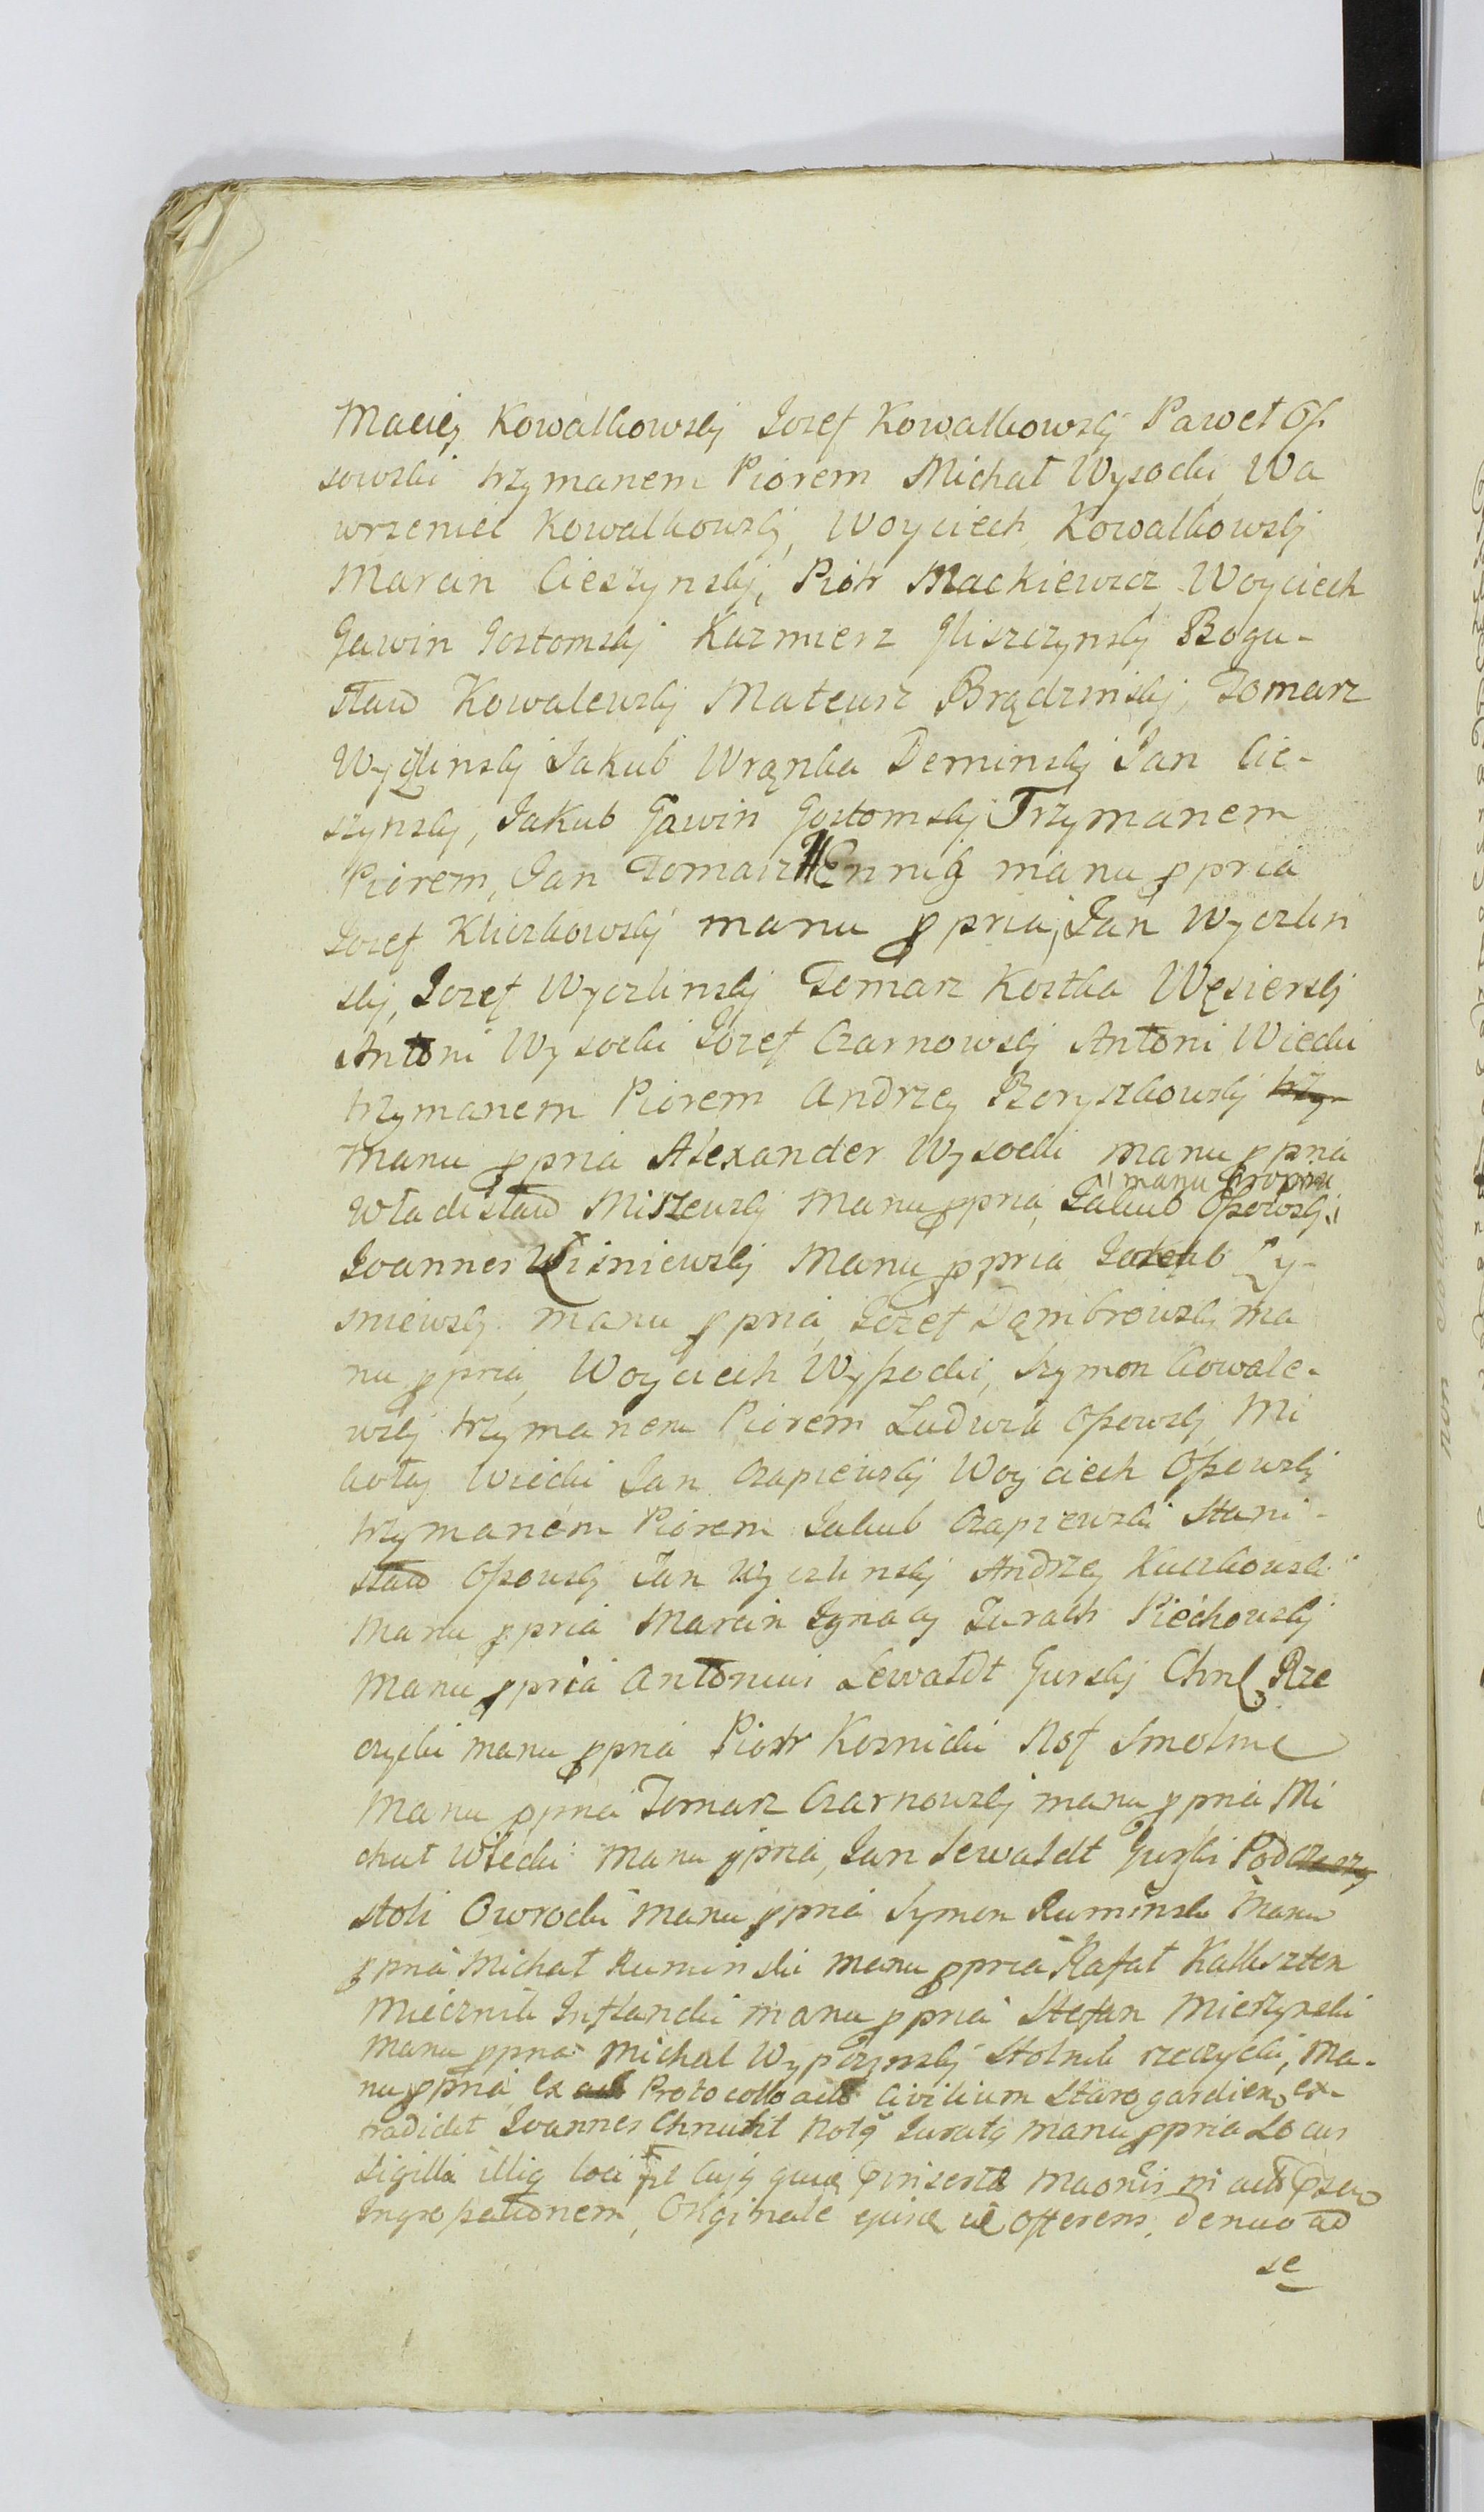 Maciey Kowalkowskj Jozef Kowalkowskj Paweł Of
sowski trzymanem Piorem Michał Wysocki Wa
wrzeniec Kowalkowskj, Woyciech Kowalkowskj
Marcin Cieszynskj, Piotr Mackiewicz Woyciech
Gawin Gostomskj Kazmierz Gliszczynskj Bogu-
sław Kowalewskj Mateusz Brądzinskj, Tomasz
Wyczlinskj Jakub Wrąnka Deminskj Jan Cie-
szynskj, Jakub Gawin Gostomskj Trzymanem
Piorem, Jan Tomasz Hennig manu ppria
Jozef Kliczkowskj manu ppria, Jan Wyczlin
skj, Jozef Wyczlinskj Tomasz Kostka Węsierskj
Antoni Wysocki Jozef Czarnowskj Antoni Wiecki
trzymanem Piorem Andrzey Boryszkowskj trzy-
manu ppria Alexander Wysocki manu ppria
manu propria
Władisław Miszewskj Manu ppria, Jakub Ossowskj
Joannes Wisniewskj Manu ppria Jakub Ly-
sniewskj manu ppria Jozef Dąmbrowskj ma
nu ppria, Woyciech Wyssocki, Szymon Kowale-
wskj trzymanem Piorem Ludwik Ossowskj Mi
kołay Wiecki Jan Czapiewskj Woyciech Ossowskj
trzymanem Piorem Jakub Czapiewski Stani-
sław Ossowskj Jan Wyczlinskj Andrzey Kuczkowski
Manu ppria Marcin Ignacy Jurath Piechowskj
Manu ppria Antonius Lewaldt Gurskj Chrl Rze
czycki manu ppria Piotr Kosnicki Rot Smolnie
Manu ppria Tomasz Czarnowskj manu ppria Mi
chał Wiecki Manu ppria, Jan Lewaldt Gurski Podczaszy
stoli Owrocki Manu ppria Symon Ruminski Manu
ppria Michał Ruminski manu ppria Rafał Kalkszten
Miecznik Inflancki manu ppria Stefan Mierzynski
Manu ppria Michał Wypczynskj Stolnik rzeczycki, Ma-
nu ppria ex Protocollo actt Civilium Starogardien, ex-
tradidit Joannes Chnutt Notg Juratg manu ppria Locus
Sigilli illig loci Cujg quid insertae in actt
Ingrossationem, Originale ejusd offerens, denuo ad
se